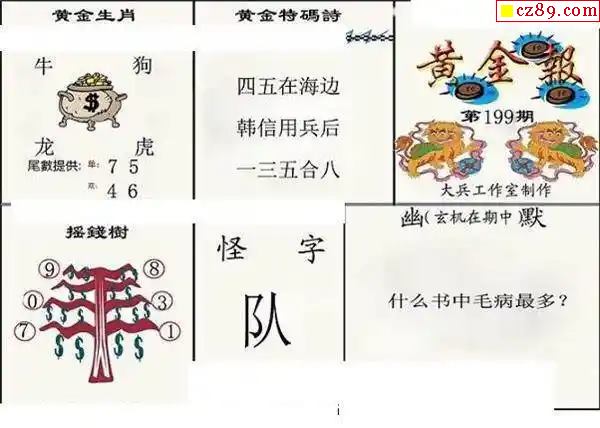 cz89.com
黄金生肖
牛 狗
$
龙 虎
尾數提供: 单: 7 5
双: 4 6
黄金特碼詩
四五在海边
韩信用兵后
一三五合八
黄金報
第199期
大兵工作室制作
摇錢樹
9 8
0 3
7 1
$ $ $ $ $ $ $ $
怪 字
队
幽(玄机在期中)默
什么书中毛病最多?